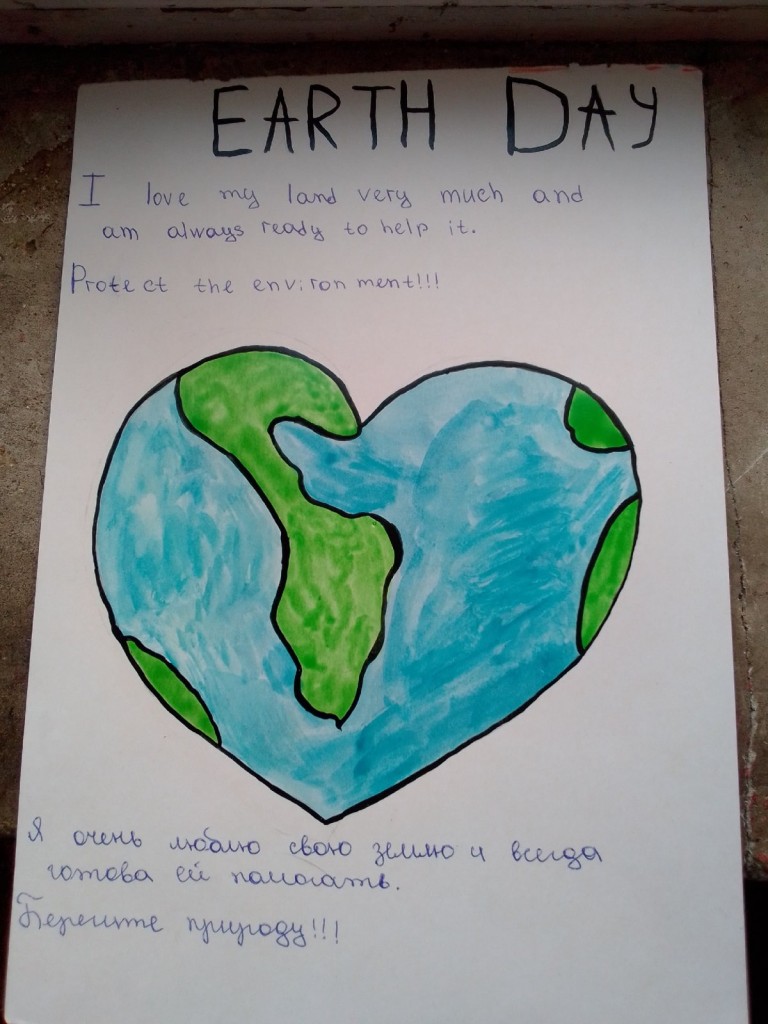 EARTH DAY
I love my land very much and
am always ready to help it.
Protect the environment!!!
Я очень люблю свою землю и всегда
готова ей помогать.
Берегите природу!!!